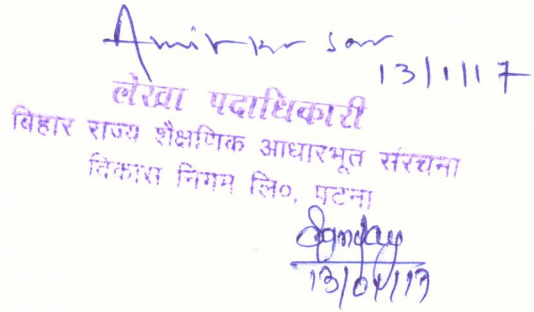 13/1/17
लेखा पदाधिकारी
बिहार राज्य शैक्षणिक आधारभूत संरचना
विकास निगम लि०, पटना
Sanjay
13/01/17